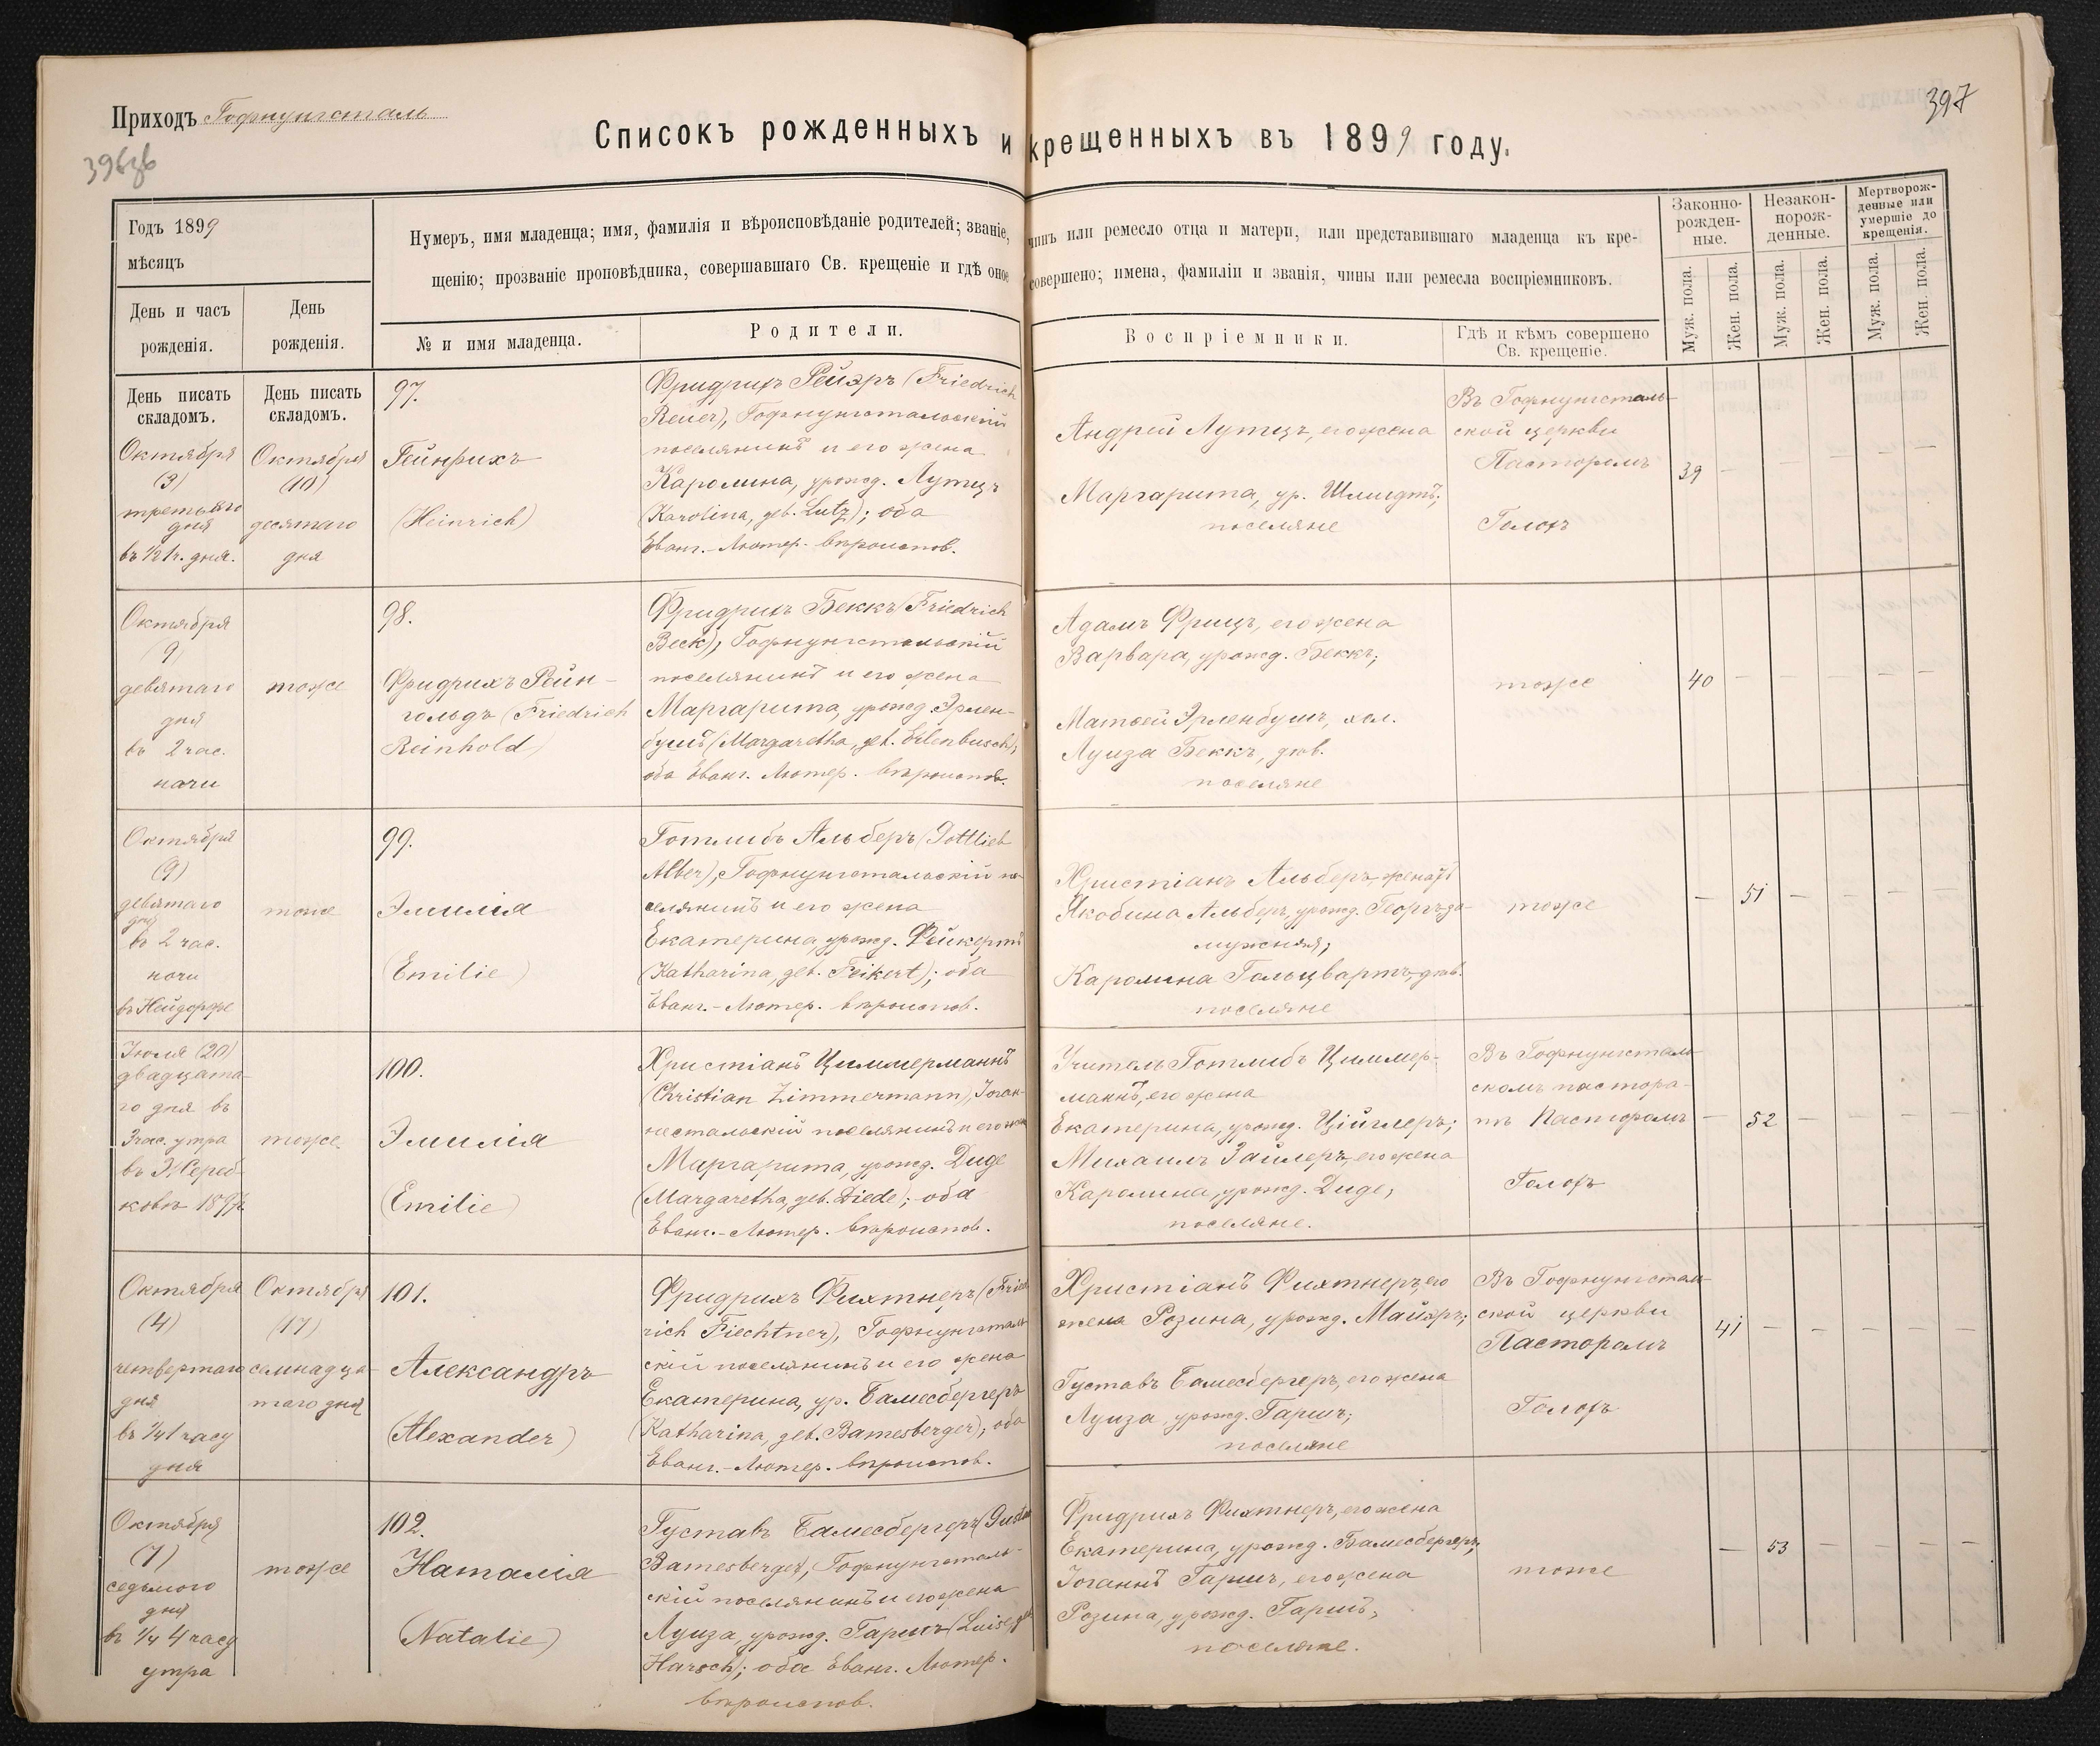 Приходъ Гофнунгсталь
396зв
397
Списокъ рожденныхъ и крещенныхъ въ 1899 году.
Годъ 1899
мѣсяцъ
Нумеръ, имя младенца; имя, фамилія и вѣроисповѣданіе родителей; званіе, чинъ или ремесло отца и матери, или представившаго младенца къ кре-
щенію; прозваніе проповѣдника, совершавшаго Св. крещеніе и гдѣ оное совершено; имена, фамиліи и званія, чины или ремесла воспріемниковъ.
Законно-
рожден-
ные.
Незакон-
норож-
денные.
Мертворож-
денные или
умершіе до
крещенія.
День и часъ
рожденія.
День
рожденія.
№ и имя младенца.
Родители.
Воспріемники.
Гдѣ и кѣмъ совершено
Св. крещеніе.
Муж. пола.
Жен. пола.
Муж. пола.
Жен. пола.
Муж. пола.
Жен. пола.
День писать
складомъ.
День писать
складомъ.
Октября
(3)
третьяго
дня
въ ½1 ч. дня.
Октября
(10)
десятаго
дня
97.
Гейнрихъ
(Heinrich)
Фридрихъ Рейэръ (Friedrich
Reuer), Гофнунгстальскій
поселянинъ и его жена
Каролина, урожд. Лутцъ
(Karolina, geb. Lutz); оба
Еванг.-Лютер. вѣроиспов.
Андрей Лутцъ, его жена
Маргарита, ур. Шмидтъ;
поселяне
Въ Гофнунгсталь-
ской церкви
Пасторомъ
Голохъ
39 – – – – –
Октября
(9)
девятаго
дня
въ 2 час.
ночи
тоже
98.
Фридрихъ Рейн-
гольдъ (Friedrich
Reinhold)
Фридрихъ Беккъ (Friedrich
Beck), Гофнунгстальскій
поселянинъ и его жена
Маргарита, урожд. Эрлен-
бушъ (Margaretha, geb. Erlenbusch);
оба Еванг. Лютер. вѣроиспов.
Адамъ Фрицъ, его жена
Варвара, урожд. Беккъ;
Матвей Эрленбушъ, хол.
Луиза Беккъ, дѣв.
поселяне
тоже
40 – – – – –
Октября
(9)
девятаго
дня
въ 2 час.
ночи
въ Нейдорфѣ
тоже
99.
Эмилія
(Emilie)
Готлибъ Альберъ (Gottlieb
Alber), Гофнунгстальскій по-
селянинъ и его жена
Екатерина, урожд. Фейкертъ
(Katharina, geb. Feikert); оба
Еванг.-Лютер. вѣроиспов.
Христіанъ Альберъ, женатъ
Якобина Альберъ, урожд. Георгъ за-
мужняя;
Каролина Гольцвартъ, дѣв.
поселяне
тоже
– 51 – – – –
Іюля (20)
двадцата-
го дня въ
3 час. утра
тоже
100.
Эмилія
(Emilie)
Христіанъ Циммерманнъ
(Christian Zimmermann), Іоган-
нестальскій поселянинъ и его жена
Маргарита, урожд. Диде
(Margaretha, geb. Diede; оба
Еванг.-Лютер. вѣроиспов.
Учитель Готлибъ Циммер-
маннъ, его жена
Екатерина, урожд. Ційглеръ;
Михаилъ Зайлеръ, его жена
Каролина, урожд. Диде;
поселяне.
Въ Гофнунгсталь-
скомъ пастора-
тѣ Пасторомъ
Голохъ
– 52 – – – –
Октября
(4)
четвертаго
дня
въ ¼1 часу
дня
Октября
(17)
семнадца-
таго дня
101.
Александръ
(Alexander)
Фридрихъ Фихтнеръ (Fried-
rich Fiechtner), Гофнунгсталь-
скій поселянинъ и его жена
Екатерина, ур. Бамесбергеръ
(Katharina, geb. Bamesberger); оба
Еванг.-Лютер. вѣроиспов.
Христіанъ Фихтнеръ, его
жена Розина, урожд. Майэръ;
Густавъ Бамесбергеръ, его жена
Луиза, урожд. Гаршъ;
поселяне
Въ Гофнунгсталь-
ской церкви
Пасторомъ
Голохъ
41 – – – – –
Октября
(7)
седьмого
дня
въ ¼ 4 часу
утра
тоже
102.
Наталія
(Natalie)
Густавъ Бамесбергеръ (Gustav
Bamesberger), Гофнунгсталь-
скій поселянинъ и его жена
Луиза, урожд. Гаршъ (Luise, geb.
Harsch); оба Еванг. Лютер.
вѣроиспов.
Фридрихъ Фихтнеръ, его жена
Екатерина, урожд. Бамесбергеръ;
Іоганнъ Гаршъ, его жена
Розина, урожд. Гаршъ,
поселяне.
тоже
– 53 – – – –